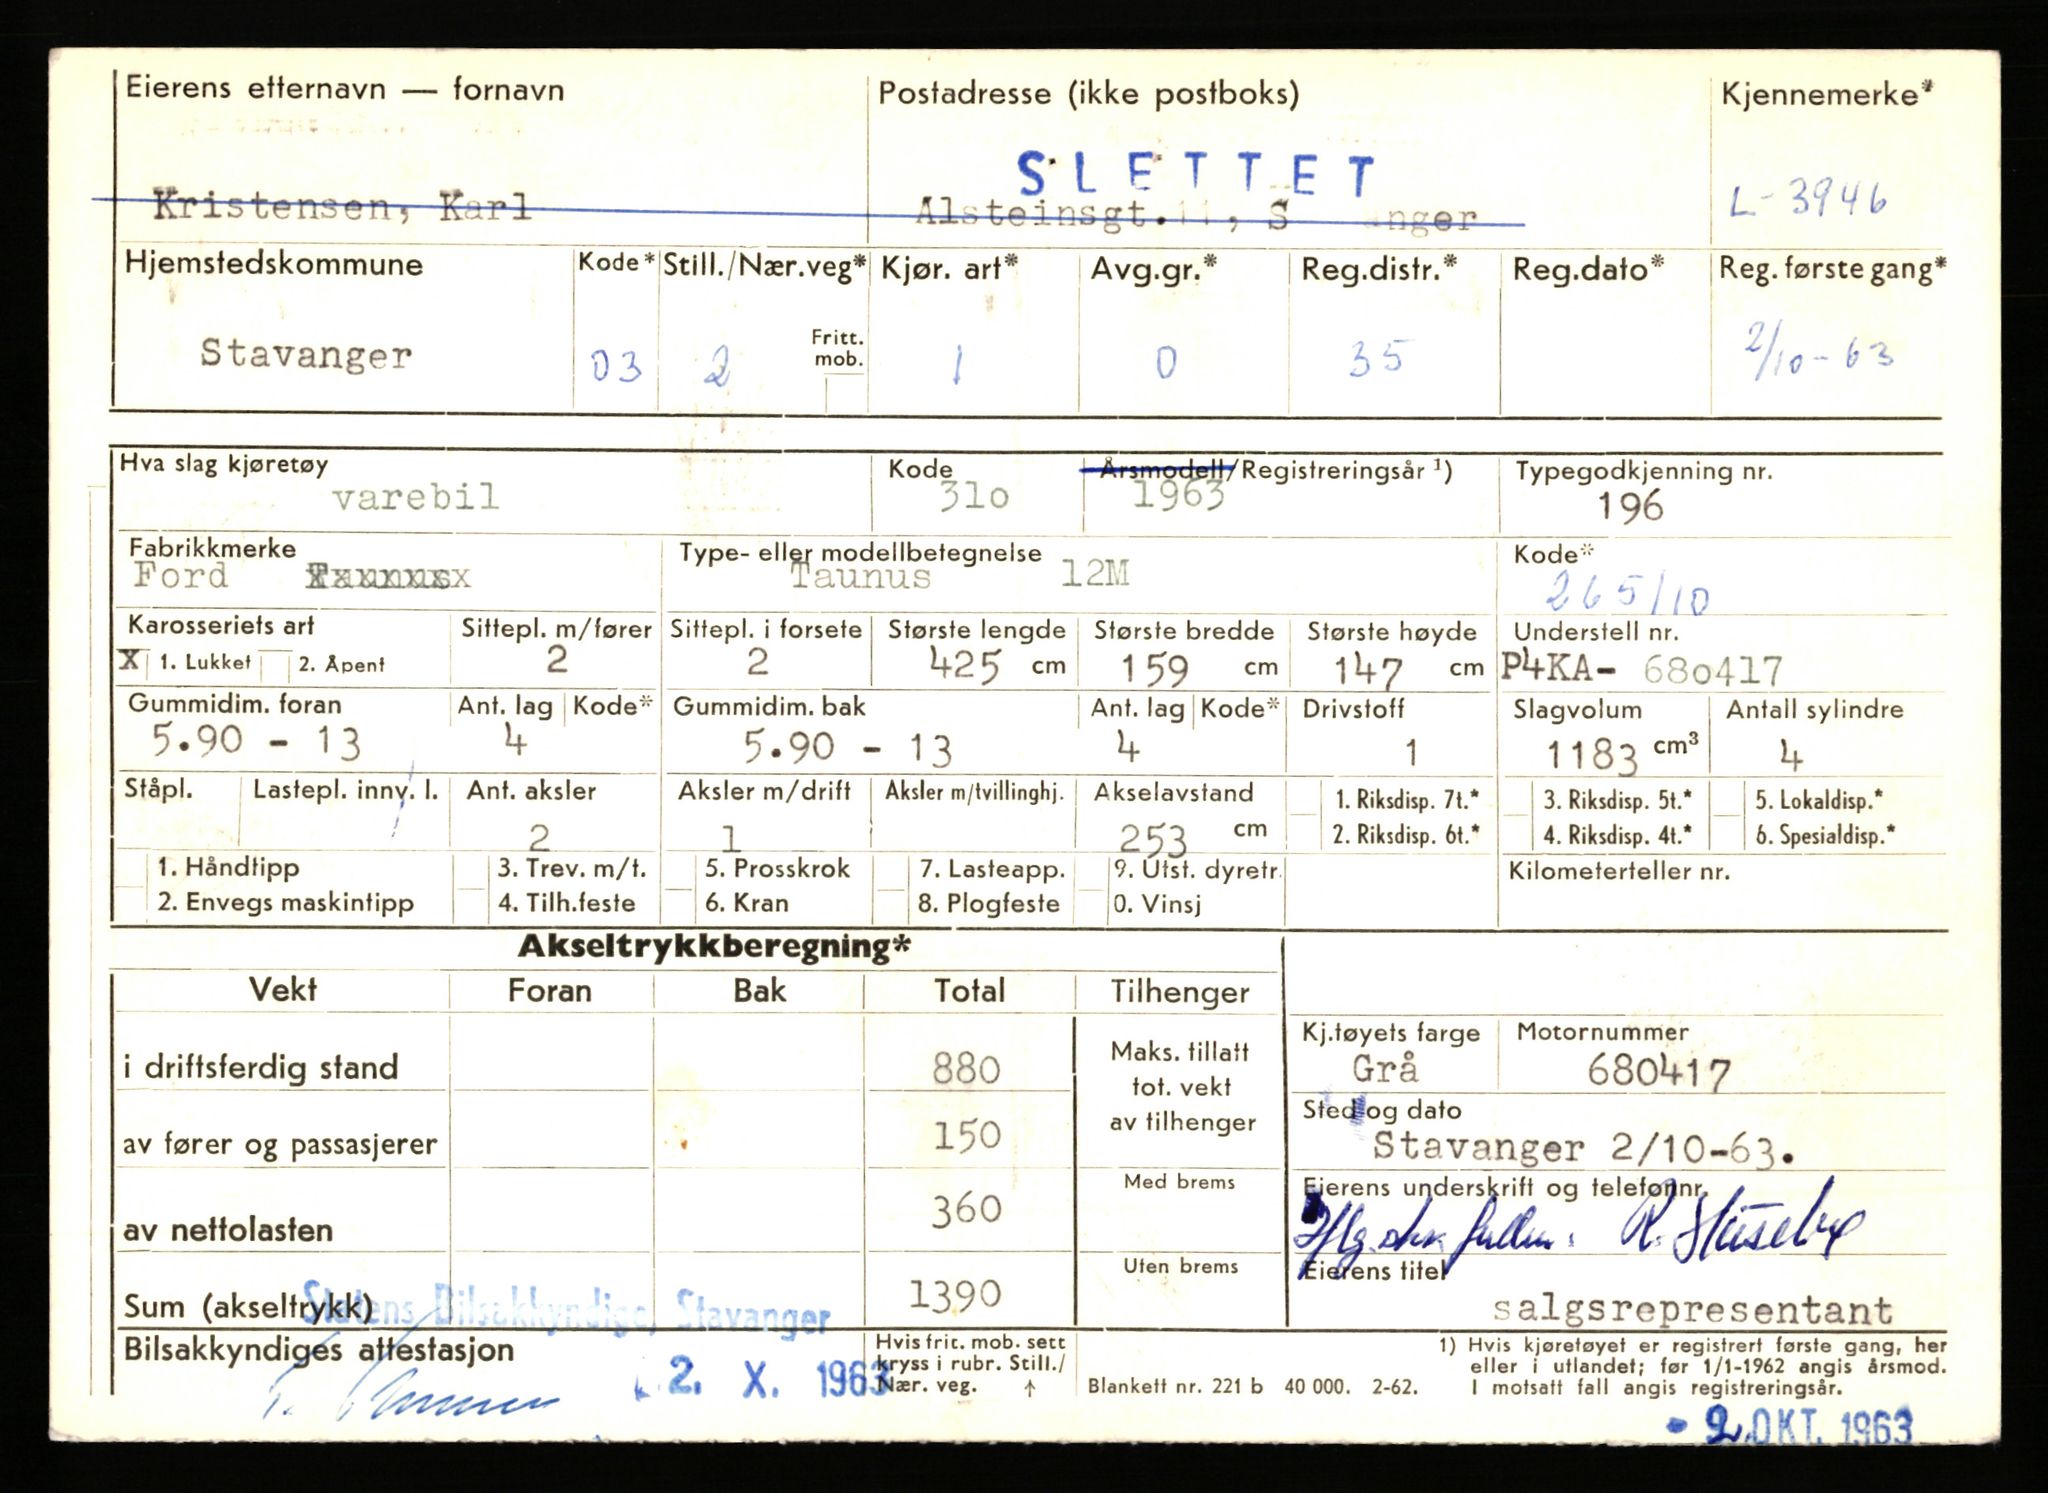 Eierens etternavn — fornavn Postadresse (ikke postboks) Kjennemerke*
SLETTET
Kristensen, Karl Alsteinsgt. 11, S anger L-3946
Hjemstedskommune Kode* Still./Nær.veg* Kjør. art* Avg.gr.* Reg.distr.* Reg.dato* Reg. første gang*
Stavanger 03 2 Fritt. mob. 1 0 35 2/10-63
Hva slag kjøretøy Kode Årsmodell/Registreringsår ¹) Typegodkjenning nr.
varebil 31o 1963 196
Fabrikkmerke Type- eller modellbetegnelse Kode*
Ford Taunus Taunus 12M 265/10
Karosseriets art Sittepl. m/fører Sittepl. i forsete Største lengde Største bredde Største høyde Understell nr.
X 1. Lukket 2. Åpent 2 2 425 cm 159 cm 147 cm P4KA- 680417
Gummidim. foran Ant. lag Kode* Gummidim. bak Ant. lag Kode* Drivstoff Slagvolum Antall sylindre
5.90 - 13 4 5.90 - 13 4 1 1183 cm³ 4
Ståpl. Lastepl. innv. l. Ant. aksler Aksler m/drift Aksler m/tvillinghj. Akselavstand 1. Riksdisp. 7t.* 3. Riksdisp. 5t.* 5. Lokaldisp.*
2 1 253 cm 2. Riksdisp. 6t.* 4. Riksdisp. 4t.* 6. Spesialdisp.*
1. Håndtipp 3. Trev. m/t. 5. Prosskrok 7. Lasteapp. 9. Utst. dyretr. Kilometerteller nr.
2. Envegs maskintipp 4. Tilh.feste 6. Kran 8. Plogfeste 0. Vinsj
Akseltrykkberegning*
Vekt Foran Bak Total Tilhenger
Kj.tøyets farge Motornummer
i driftsferdig stand 880 Maks. tillatt tot. vekt av tilhenger Grå 680417
Sted og dato
av fører og passasjerer 150 Stavanger 2/10-63.
Med brems Eierens underskrift og telefonnr.
av nettolasten 360 R.
Uten brems Eierens titel
Sum (akseltrykk) 1390 salgsrepresentant
Statens Bilsakkyndige, Stavanger
Bilsakkyndiges attestasjon
2. X. 1963
Hvis frit. mob. sett
kryss i rubr. Still./
Nær. veg. ↑
Blankett nr. 221 b 40 000. 2-62.
1) Hvis kjøretøyet er registrert første gang, her
eller i utlandet; før 1/1-1962 angis årsmod.
I motsatt fall angis registreringsår.
- 2. OKT. 1963